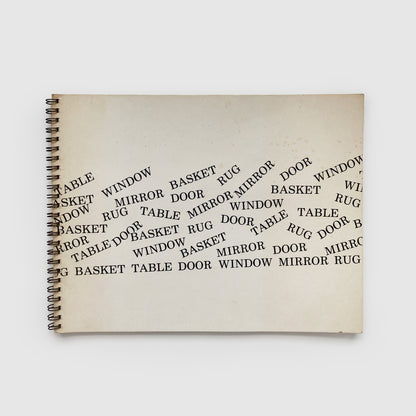 TABLE WINDOW BASKET RUG MIRROR DOOR WINDOW
ASKET MIRROR DOOR BASKET WI
NDOW RUG TABLE MIRROR WINDOW RUG
BASKET DOOR BASKET RUG DOOR TABLE TABLE
RROR TABLE RUG DOOR B
WINDOW BASKET MIRROR DOOR MIRRO
G BASKET TABLE DOOR WINDOW MIRROR RUG